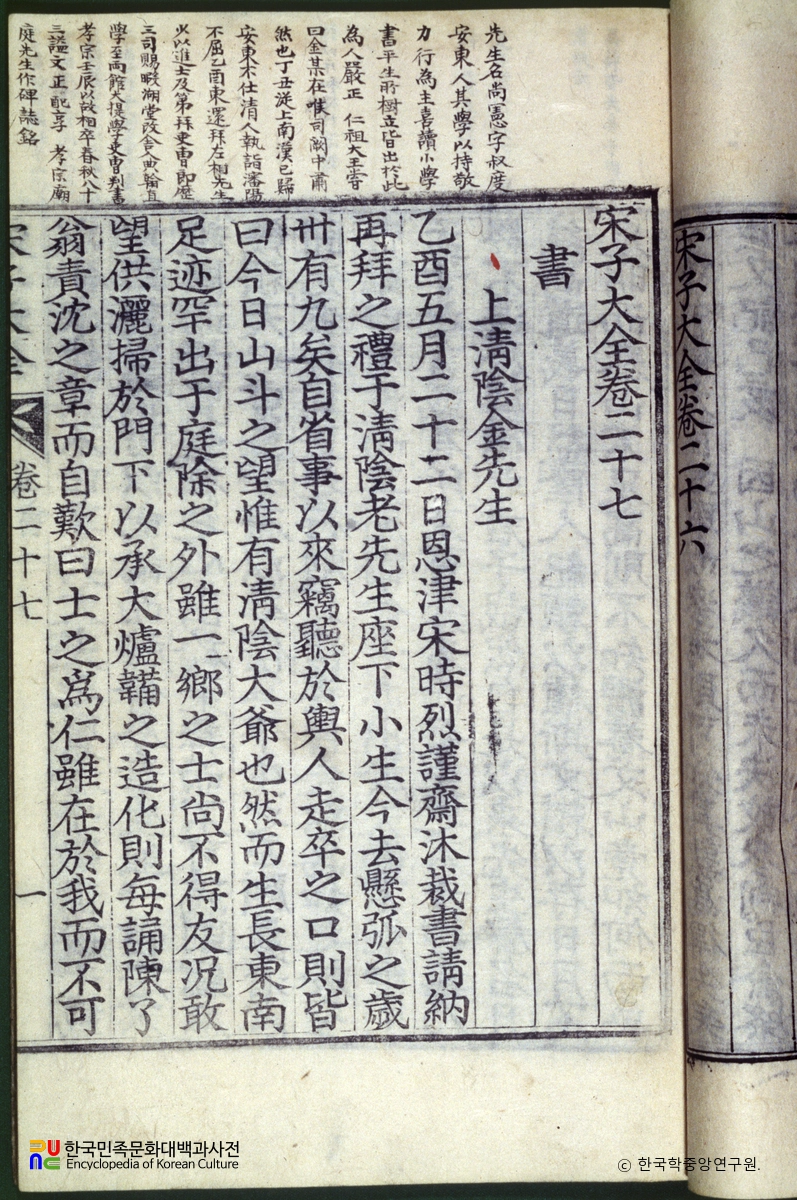 宋子大全卷二十六
先生名尚憲字叔度
安東人其學以持敬
力行為主喜讀小學
書平生所樹立皆出於此
為人嚴正 仁祖大王嘗
曰金某在 司闕中肅
然也丁丑從上南漢已歸
安東不仕清人執詣瀋陽
不屈乙酉東還拜左相先生
少以進士及第拜吏曹郎歷
三司賜暇湖堂改舍人典翰直
學至兩館大提學吏曹判書
孝宗壬辰以故相卒春秋八十
三謚文正 配享 孝宗廟
庭先生作碑誌銘
宋子大全卷二十七
書
上淸陰金先生
乙酉五月二十二日恩津宋時烈謹齋沐裁書請納
再拜之禮于淸陰老先生座下小生今去懸弧之歲
卅有九矣自省事以來竊聽於輿人走卒之口則皆
曰今日山斗之望惟有淸陰大爺也然而生長東南
足迹罕出于庭除之外雖一鄕之士尙不得友況敢
望供灑掃於門下以承大爐韛之造化則每誦陳了
翁責沈之章而自歎曰士之爲仁雖在於我而不可
宋子大全 卷二十七 一
한국민족문화대백과사전
Encyclopedia of Korean Culture
© 한국학중앙연구원.